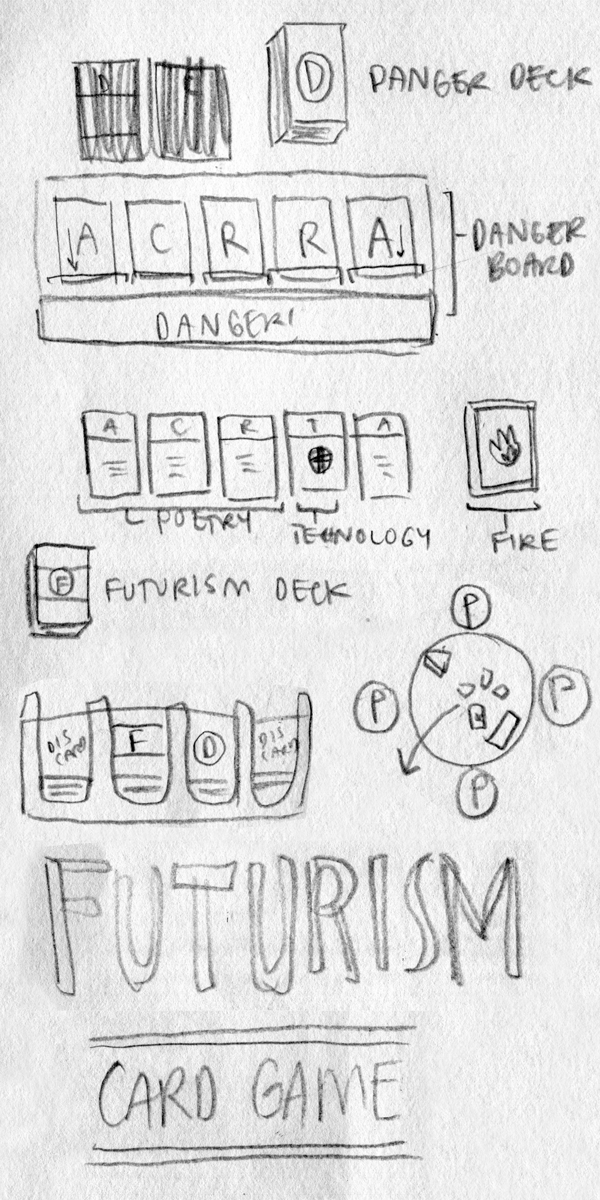 D
D DANGER DECK
A C R R A
DANGER BOARD
DANGER!
A C R T A
POETRY TECHNOLOGY FIRE
F FUTURISM DECK
P
P P
P
DIS CARD F D DIS CARD
FUTURISM
CARD GAME